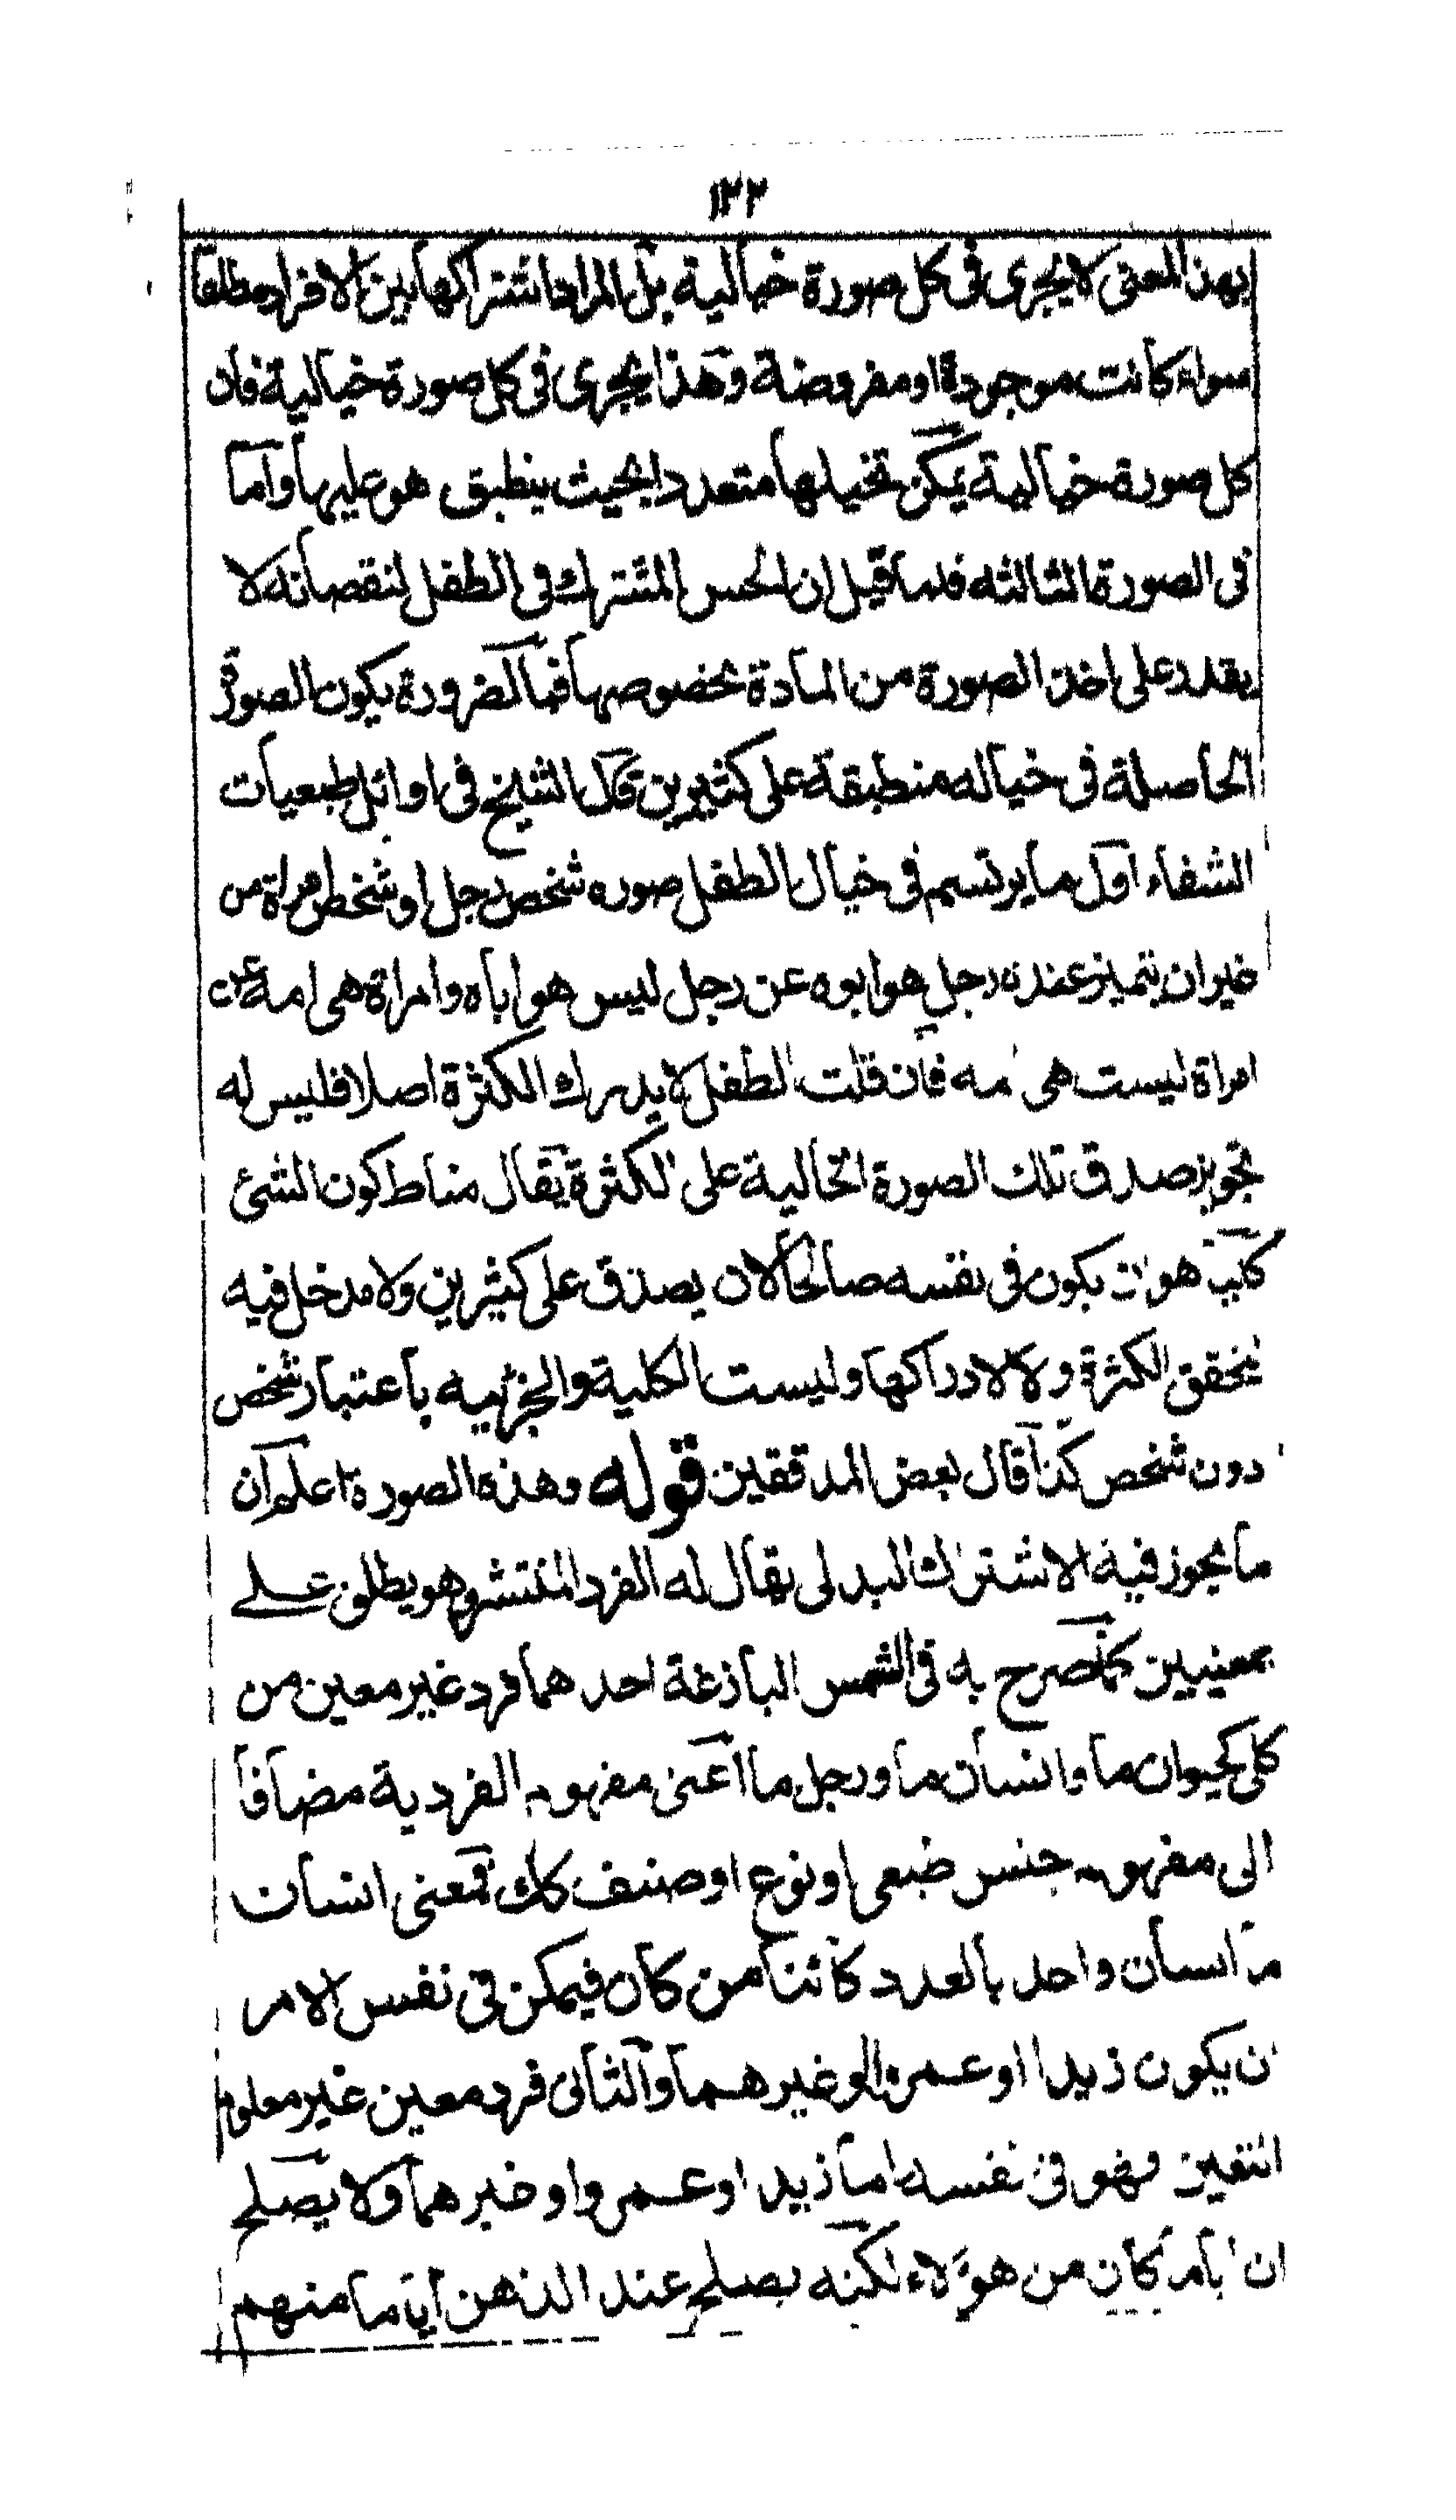 ١٣٢
بهذا المعنى لا يجرى فى كل صورة خيالية بل المراد اشتراكها بين الافراد مطلقا
سواء كانت موجودة او مفروضة وهذا يجرى فى كل صورة خيالية فان
كل صورة خيالية يمكن تخيلها متعددا بحيث ينطبق هو عليها واما
فى الصورة الثالثه فلما قيل ان الحس المشترك فى الطفل لنقصانه لا
يقدر على اخذ الصورة من المادة بخصوصها فبالضرورة يكون الصورة
الحاصلة فى خياله منطبقة على كثيرين قال الشيخ فى اوائل طبعيات
الشفاء اول ما يرتسم فى خيال الطفل صوره شخص رجل او شخص امراة من
غير ان يتميز عنده رجل هو ابوه عن رجل ليس هو اباه وامراة هى امه عن
امراة ليست هى امه فان قلت الطفل لا يدرك الكثرة اصلا فليس له
تجويز صدق تلك الصورة الخالية على الكثرة يقال مناط كون الشئ
كليا هو ان يكون فى نفسه صالحا لان يصدق على كثيرين ولا مدخل فيه
لتحقق الكثرة ولا لادراكها وليست الكلية والجزئيه باعتبار شخص
دون شخص كذا قال بعض المدققين قوله وهذه الصورة اعلم ان
ما يجوز فيه الاشتراك البدلى يقال له الفرد المنتشر وهو يطلق على
معنيين كما صرح به فى الشمس البازغة احدهما فرد غير معين من
كلى كحيوان ما وانسان ما ورجل ما اعنى مفهوم الفردية مضافا
الى مفهوم جنس طبعى او نوع او صنف كذلك فمعنى انسان
ما انسان واحد بالعدد كائنا من كان فيمكن فى نفس الامر
ان يكون زيدا او عمروا او غيرهما والثانى فرد معين غير معلوم
التعين فهو فى نفسه اما زيد او عمرو او غيرهما ولا يصلح
ان ايا ما كان من هؤلاء لكنه يصلح عند الذهن ايا ما منهم